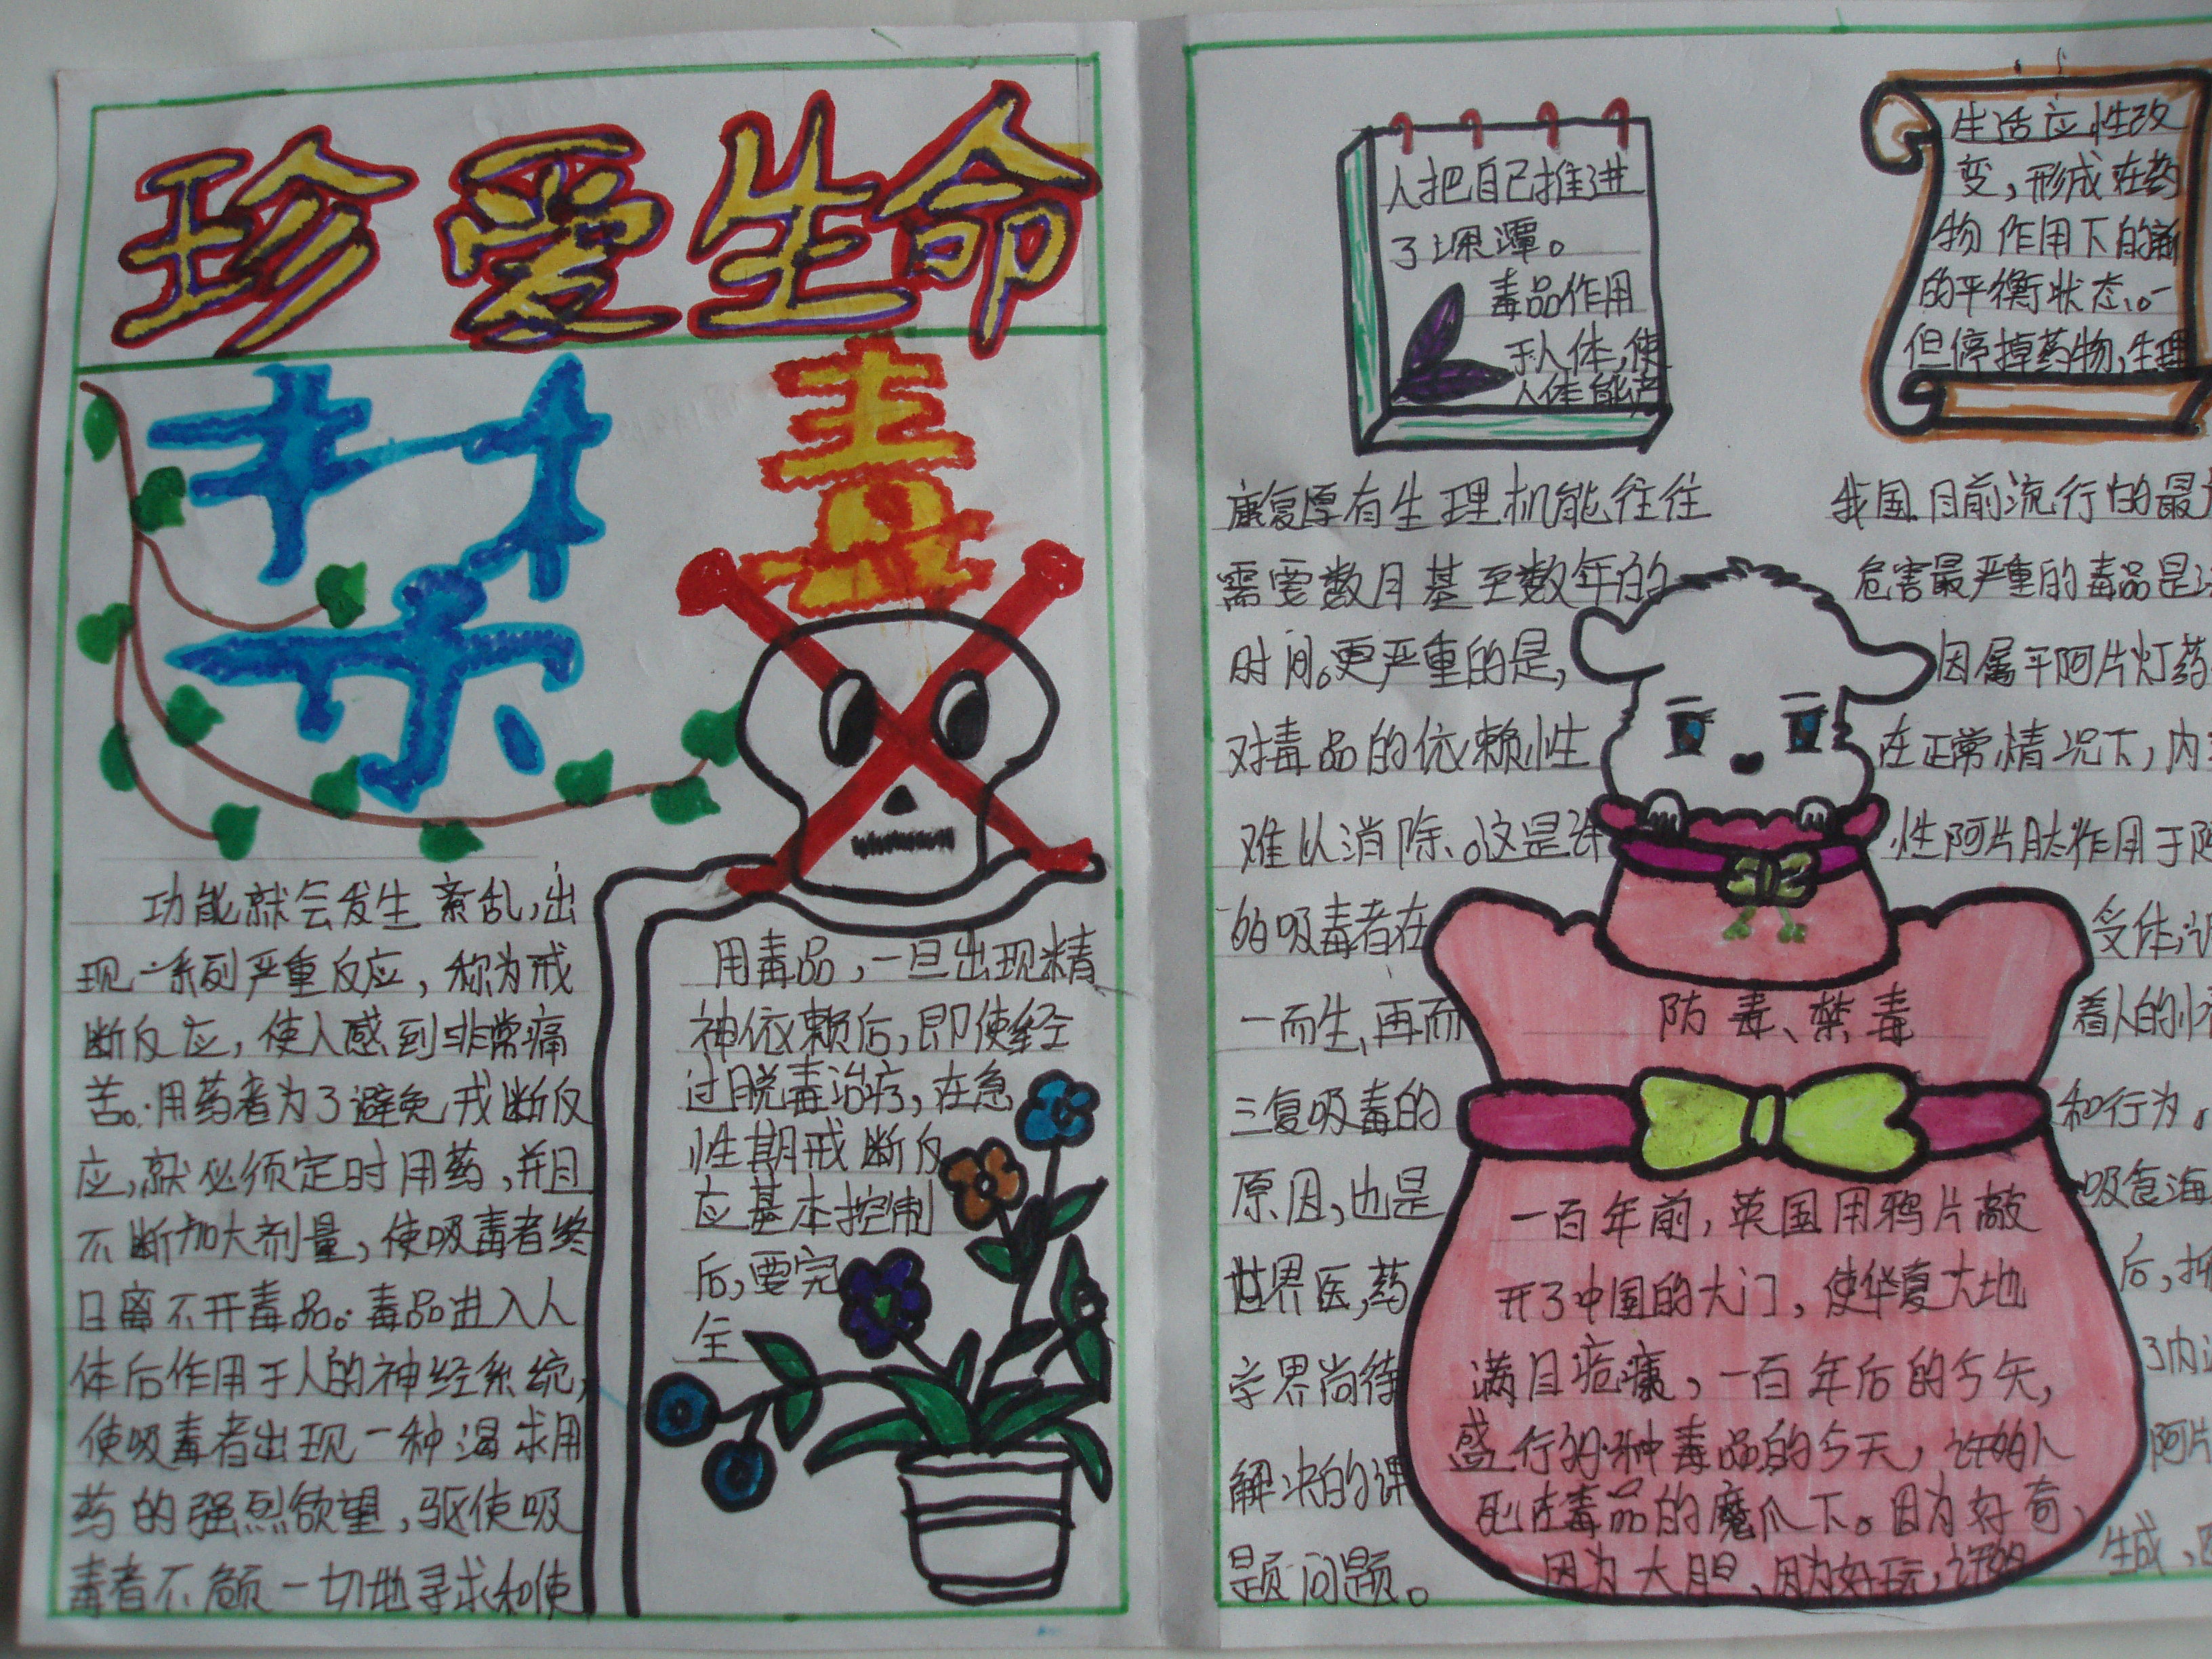 珍爱生命
禁
毒
功能就会发生紊乱,出
现一系列严重反应,称为戒
断反应,使人感到非常痛
苦。用药者为了避免戒断反
应,就必须定时用药,并且
不断加大剂量,使吸毒者终
日离不开毒品。毒品进入人
体后作用于人的神经系统,
使吸毒者出现一种渴求用
药的强烈欲望,驱使吸
毒者不顾一切地寻求和使
用毒品,一旦出现精
神依赖后,即使经
过脱毒治疗,在急
性期戒断反
应基本控制
后,要完
全
人把自己推进
了深潭。
毒品作用
于人体,使
人体能产
康复原有生理机能往往
需要数月甚至数年的
时间。更严重的是,
对毒品的依赖性
难以消除。这是许
的吸毒者在
一而生、再而
三复吸毒的
原因,也是
世界医,药
学界尚待
解决的课
题问题。
防毒、禁毒
一百年前,英国用鸦片敲
开了中国的大门,使华夏大地
满目疮痍,一百年后的今天,
盛行的种毒品的今天,许的人
死在毒品的魔爪下。因为好奇,
因为大胆,因为好玩,
生活应性改
变,形成在药
物作用下的新
的平衡状态。一
但停掉药物,生理
我国目前流行的最
危害最严重的毒品是
因属于阿片灯药
在正常情况下,内
性阿片肽作用于阿
受体,
着人的
和行为。
吸食海
后,
了内
阿片
生成,